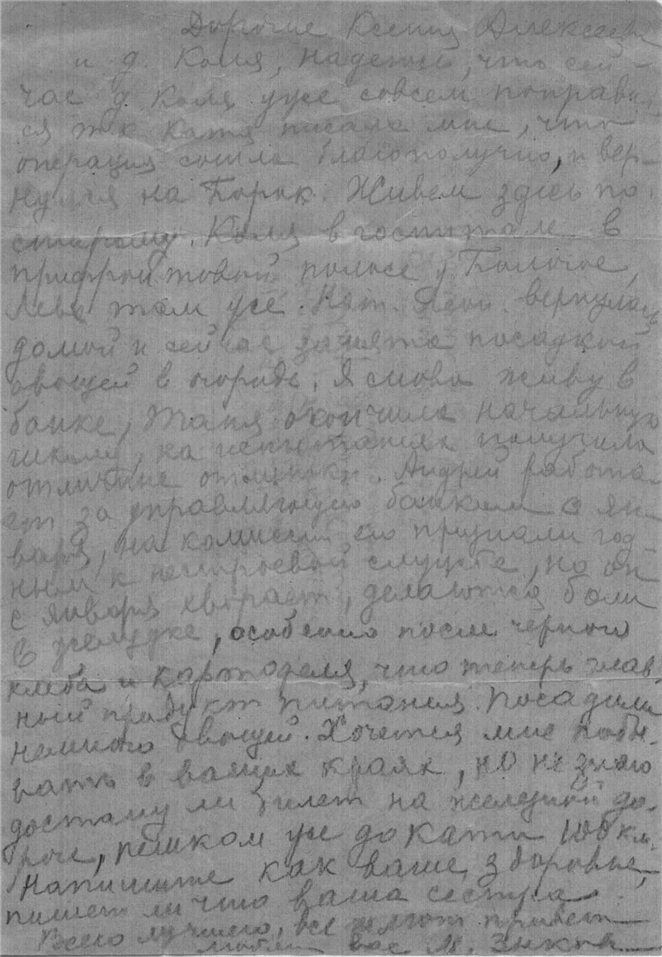 Дорогие Ксения Алексеев
и д. Коля, надеюсь, что сей-
час д. Коля уже совсем поправил
ся т.к. Катя писала мне, что
операция сошла благополучно, и вер-
нулся на Борок. Живем здесь по-
старому. Коля в госпитале в
прифронтовой полосе у Бологое,
Лева там уже. вернулась
домой и сейчас занята посадкой
овощей в огороде. Я снова живу в
банке, Таня окончила начальную
школу, на испытаниях получила
отличные отметки. Андрей работа-
ет за управляющего банком с ян-
варя, на комиссии его признали год-
ным к нестроевой службе, но он
с января хворает, делаются боли
в желудке, особенно после черного
хлеба и картофеля, что теперь глав-
ный продукт питания. Посадили
немного овощей. Хочется мне побы-
вать в ваших краях, но не знаю
достану ли билет на железной до-
роге, пешком уж до Кати 100 км.
Напишите как ваше здоровье,
пишет ли что ваша сестра.
Всего лучшего, все шлют привет
вас М.